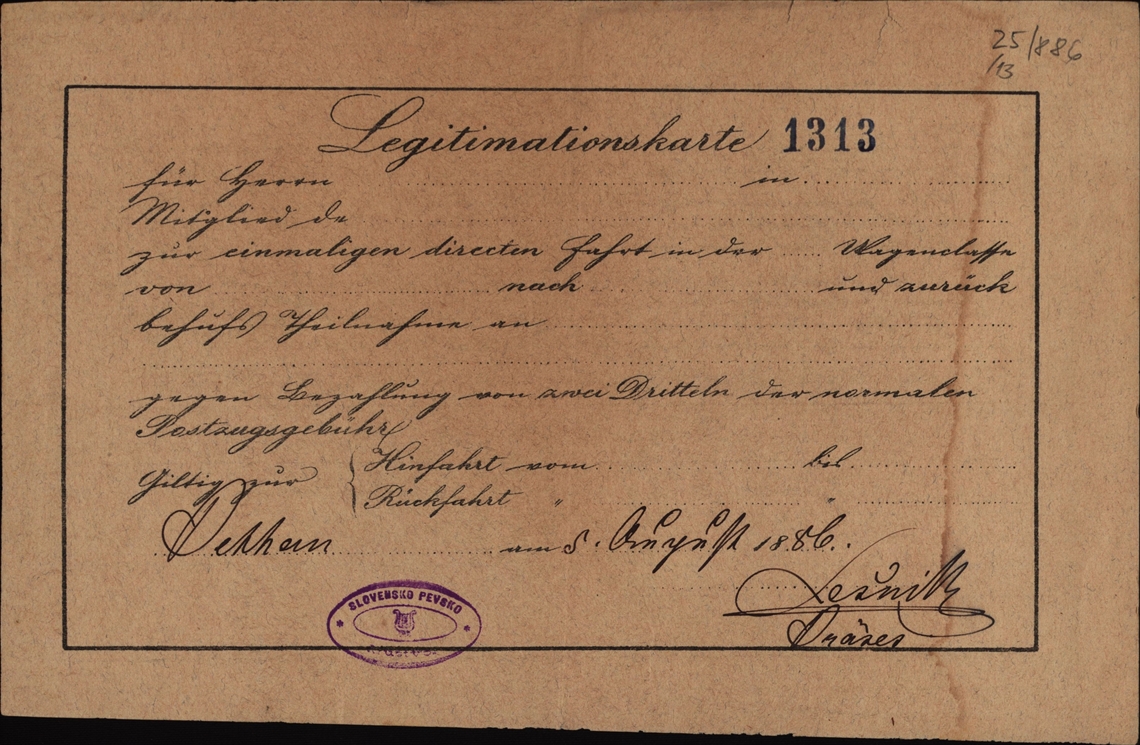 25/886
/13
Legitimationskarte 1313
für Herrn in
Mitglied de
zur einmaligen directen Fahrt in der Wagenclasse
von nach und zurück
behufs Theilnahme an
gegen Bezahlung von zwei Dritteln der normalen
Postzugsgebühr
Giltig zur
Hinfahrt vom bis
Rückfahrt " "
am 5. August 1886.
SLOVENSKO PEVSKO
Lešnik
Präses